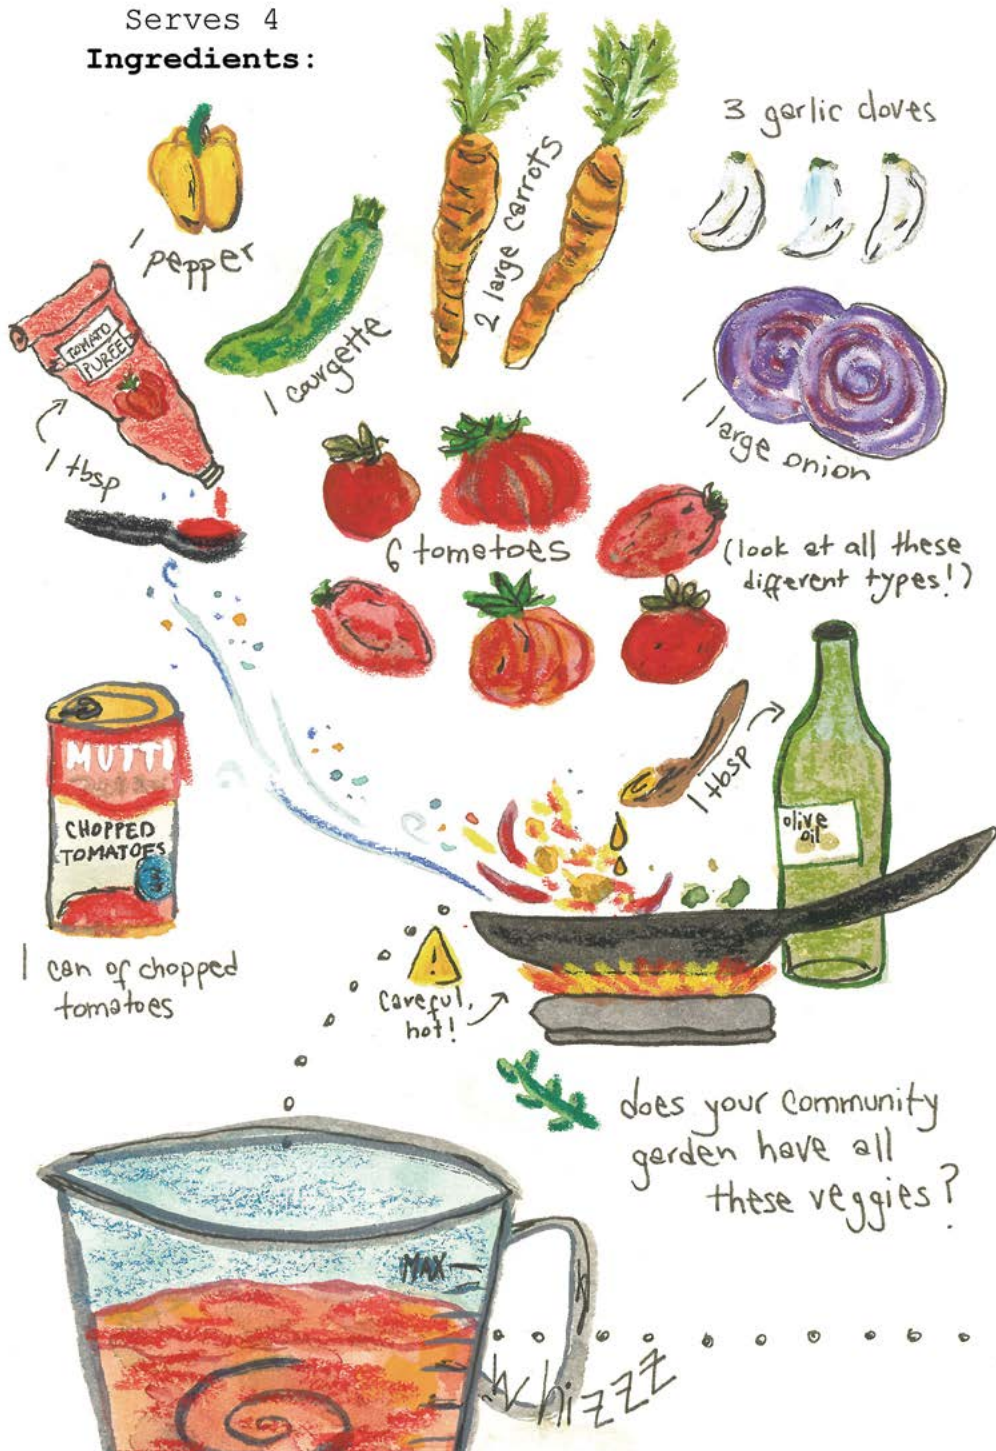 Serves 4
Ingredients:
1 pepper
1 courgette
2 large carrots
3 garlic cloves
1 large onion
TOMATO
PURÉE
1 tbsp
6 tometoes
(look at all these
different types!)
1 tbsp
olive
oil
MUTTI
CHOPPED
TOMATOES
1 can of chopped
tomatoes
!
Careful,
hot!
does your community
garden have all
these veggies?
MAX
Whizzz